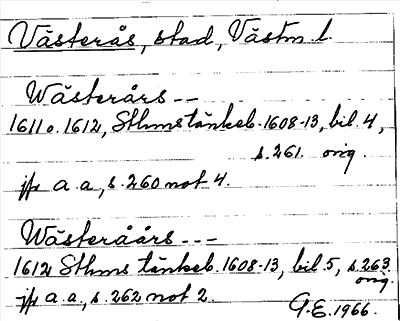 Västerås, stad, Västm l.
Wästerårs --
1611 o. 1612, Sthms tänkeb. 1608-13, bil. 4,
s. 261. orig.
jfr a. a., s. 260 not 4.
Wästeråårs ---
1612 Sthms tänkeb. 1608-13, bil. 5, s. 263
orig.
jfr a. a., s. 262 not 2.
G.E. 1966.